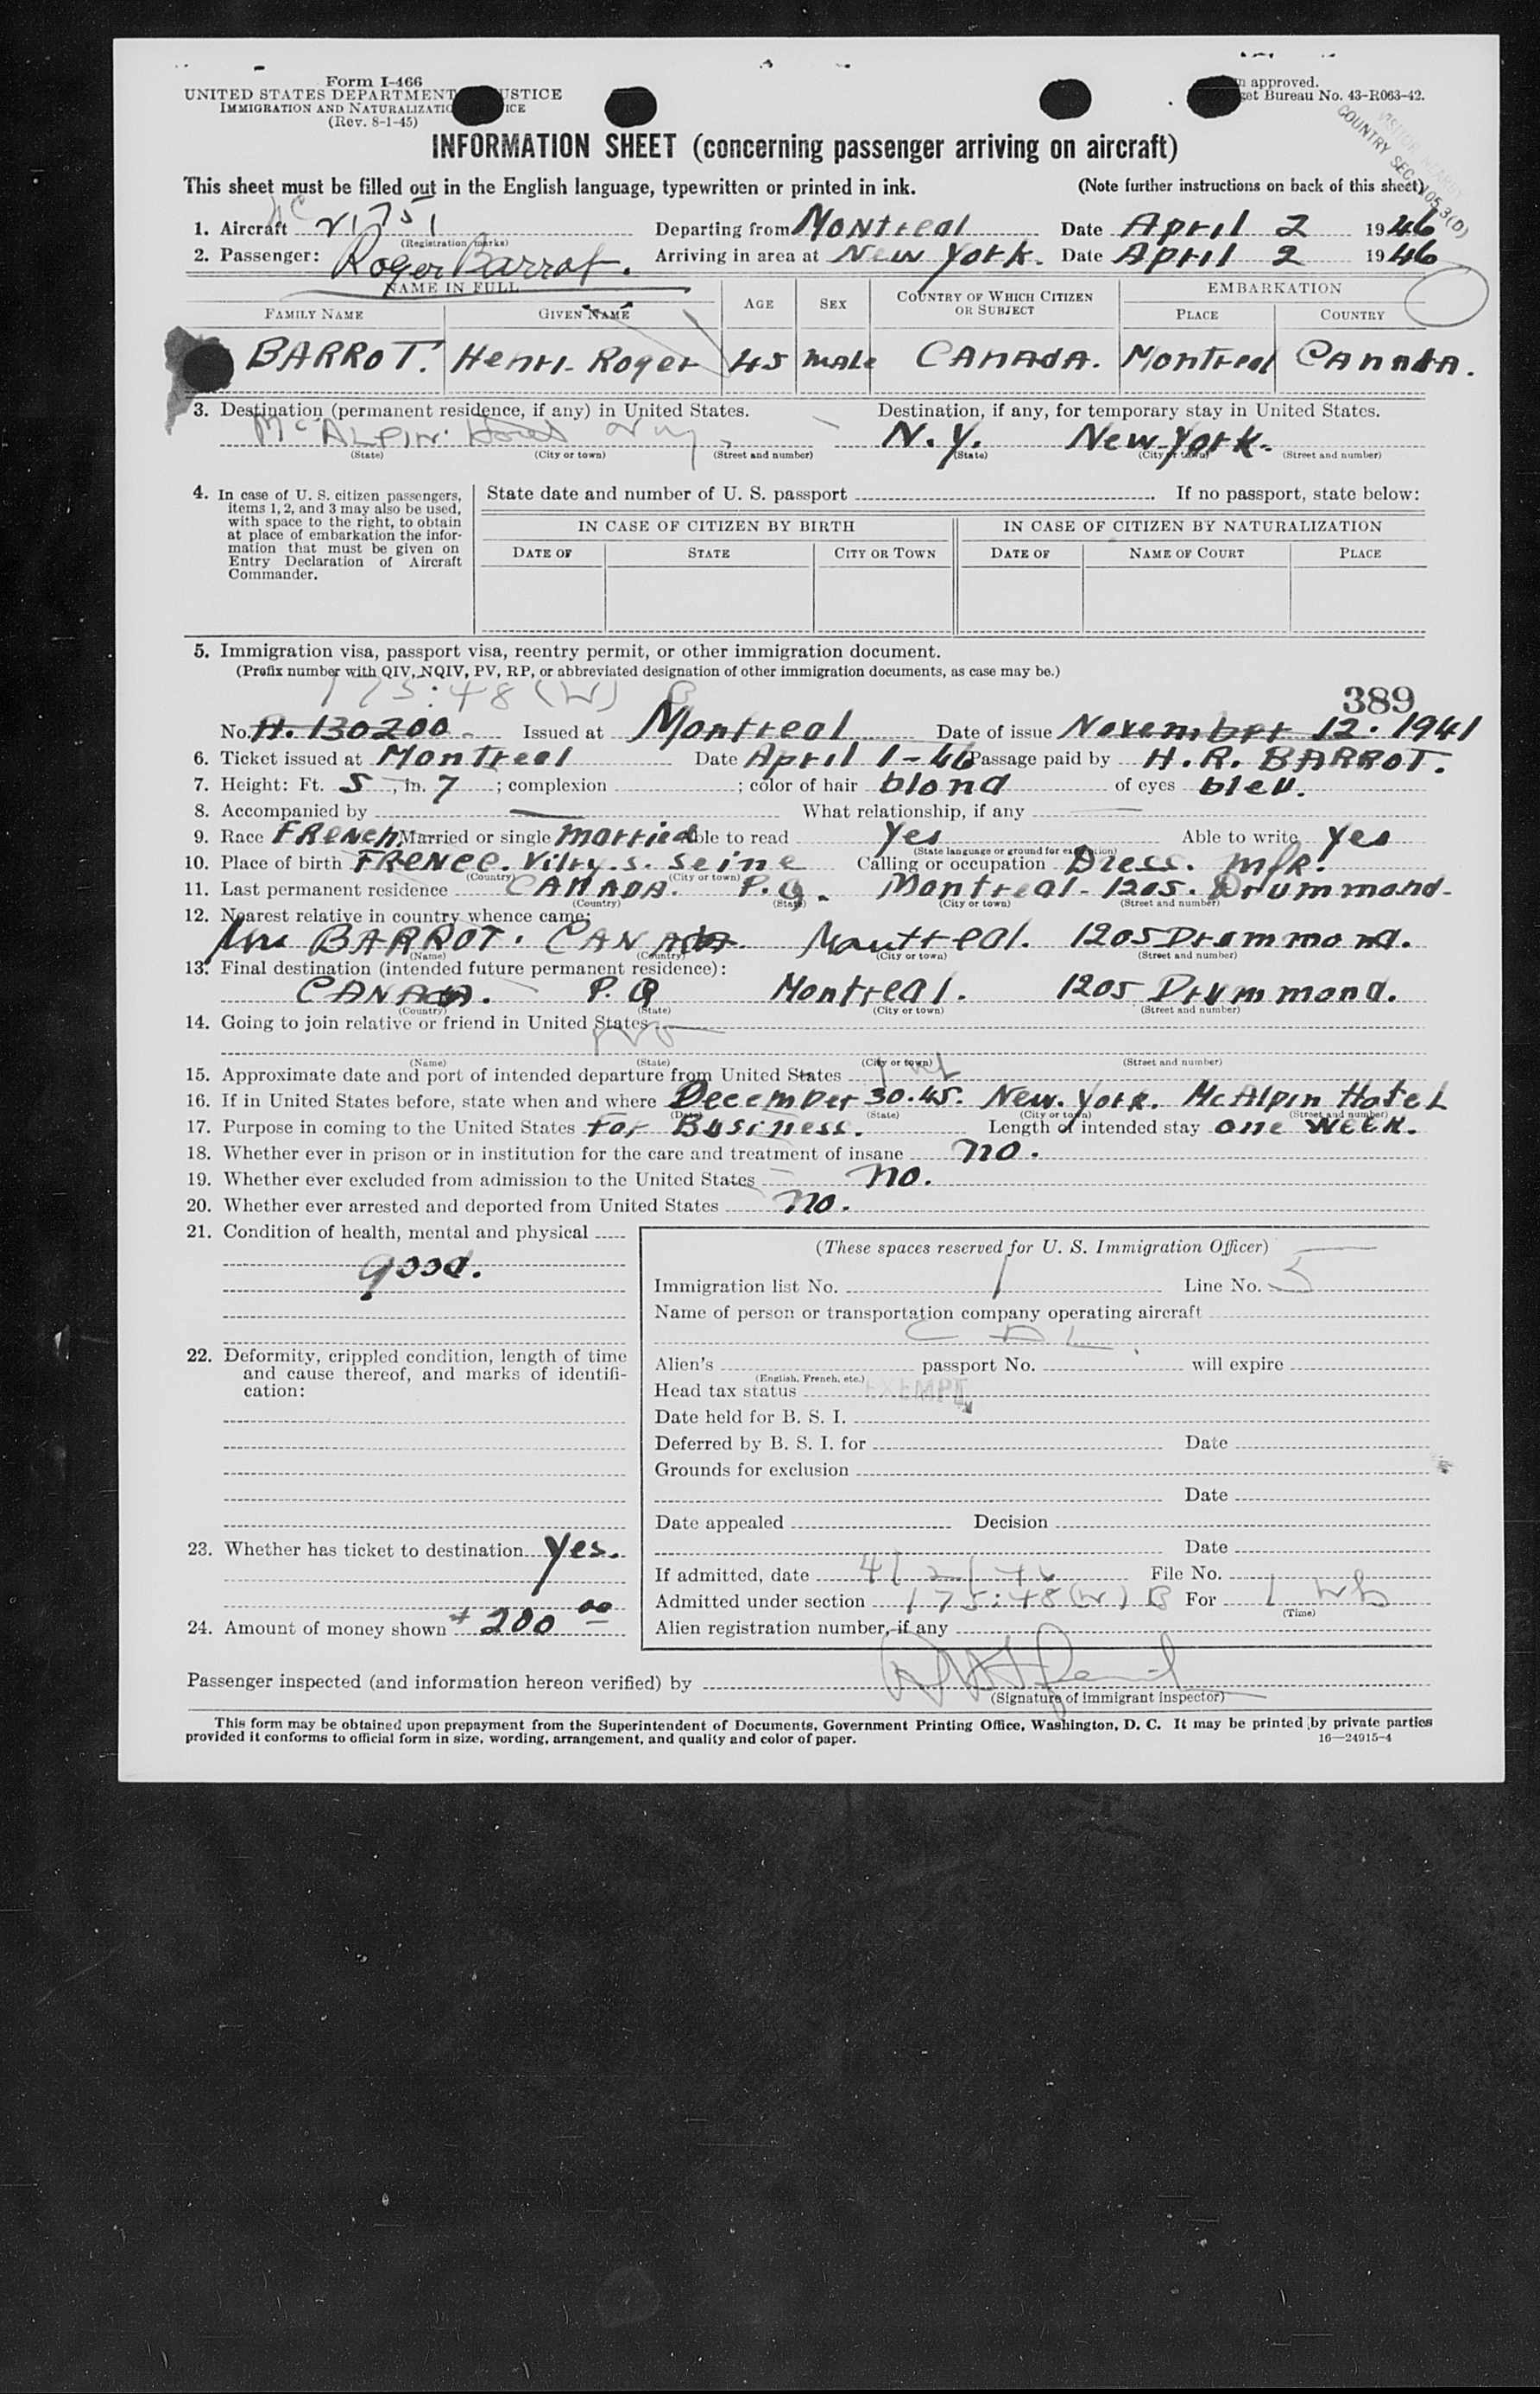 Form I-466
UNITED STATES DEPARTMENT JUSTICE
IMMIGRATION AND NATURALIZATION
(Rev. 8-1-45)
approved.
Bureau No. 43-R063-42.
COUNTRY SEC.
INFORMATION SHEET (concerning passenger arriving on aircraft)
This sheet must be filled out in the English language, typewritten or printed in ink. (Note further instructions on back of this sheet)
1. Aircraft NC 21751 Departing from Montreal Date April 2 1946
(Registration marks)
2. Passenger: Roger Barrot. Arriving in area at New York. Date April 2 1946
NAME IN FULL AGE SEX COUNTRY OF WHICH CITIZEN OR SUBJECT EMBARKATION
FAMILY NAME GIVEN NAME PLACE COUNTRY
BARROT. Henri-Roger 45 MALE CANADA. Montreal CANADA.
3. Destination (permanent residence, if any) in United States. Destination, if any, for temporary stay in United States.
McALPIN Hotel N.Y. New York.
(State) (City or town) (Street and number) (State) (City or town) (Street and number)
4. In case of U. S. citizen passengers, items 1, 2, and 3 may also be used, with space to the right, to obtain at place of embarkation the information that must be given on Entry Declaration of Aircraft Commander.
State date and number of U. S. passport If no passport, state below:
IN CASE OF CITIZEN BY BIRTH IN CASE OF CITIZEN BY NATURALIZATION
DATE OF STATE CITY OR TOWN DATE OF NAME OF COURT PLACE
5. Immigration visa, passport visa, reentry permit, or other immigration document.
(Prefix number with QIV, NQIV, PV, RP, or abbreviated designation of other immigration documents, as case may be.)
175:48(W) B 389
No. A. 130200 Issued at Montreal Date of issue November 12. 1941
6. Ticket issued at Montreal Date April 1-46 Passage paid by H.R. BARROT.
7. Height: Ft. 5, in. 7; complexion ; color of hair blond of eyes bleu.
8. Accompanied by — What relationship, if any —
9. Race FRench Married or single married Able to read Yes Able to write Yes
(State language or ground for exemption)
10. Place of birth FRENCE. Vitry. s. Seine Calling or occupation Dress. mfr.
(Country) (City or town)
11. Last permanent residence CANADA. P.Q. Montreal - 1205. Drummond-
(Country) (State) (City or town) (Street and number)
12. Nearest relative in country whence came:
Mrs BARROT. CANADA Montreal. 1205 Drummond.
(Name) (Country) (City or town) (Street and number)
13. Final destination (intended future permanent residence):
CANADA. P.Q Montreal. 1205 Drummond.
(Country) (State) (City or town) (Street and number)
14. Going to join relative or friend in United States no
(Name) (State) (City or town) (Street and number)
15. Approximate date and port of intended departure from United States
16. If in United States before, state when and where December 30.45. New. York. McAlpin Hotel
(Date) (State) (City or town) (Street and number)
17. Purpose in coming to the United States For Business. Length of intended stay one week.
18. Whether ever in prison or in institution for the care and treatment of insane no.
19. Whether ever excluded from admission to the United States no.
20. Whether ever arrested and deported from United States no.
21. Condition of health, mental and physical
good.
22. Deformity, crippled condition, length of time and cause thereof, and marks of identification:
23. Whether has ticket to destination Yes.
24. Amount of money shown $ 200 00
(These spaces reserved for U. S. Immigration Officer)
Immigration list No. 1 Line No. 5
Name of person or transportation company operating aircraft
Alien's passport No. will expire
(English, French, etc.)
Head tax status EXEMPT
Date held for B. S. I.
Deferred by B. S. I. for Date
Grounds for exclusion
Date
Date appealed Decision
Date
If admitted, date 4/2/46 File No.
Admitted under section 175:48(W) B For 1 wk
(Time)
Alien registration number, if any
Passenger inspected (and information hereon verified) by
(Signature of immigrant inspector)
This form may be obtained upon prepayment from the Superintendent of Documents, Government Printing Office, Washington, D. C. It may be printed by private parties
provided it conforms to official form in size, wording, arrangement, and quality and color of paper. 16—24915-4